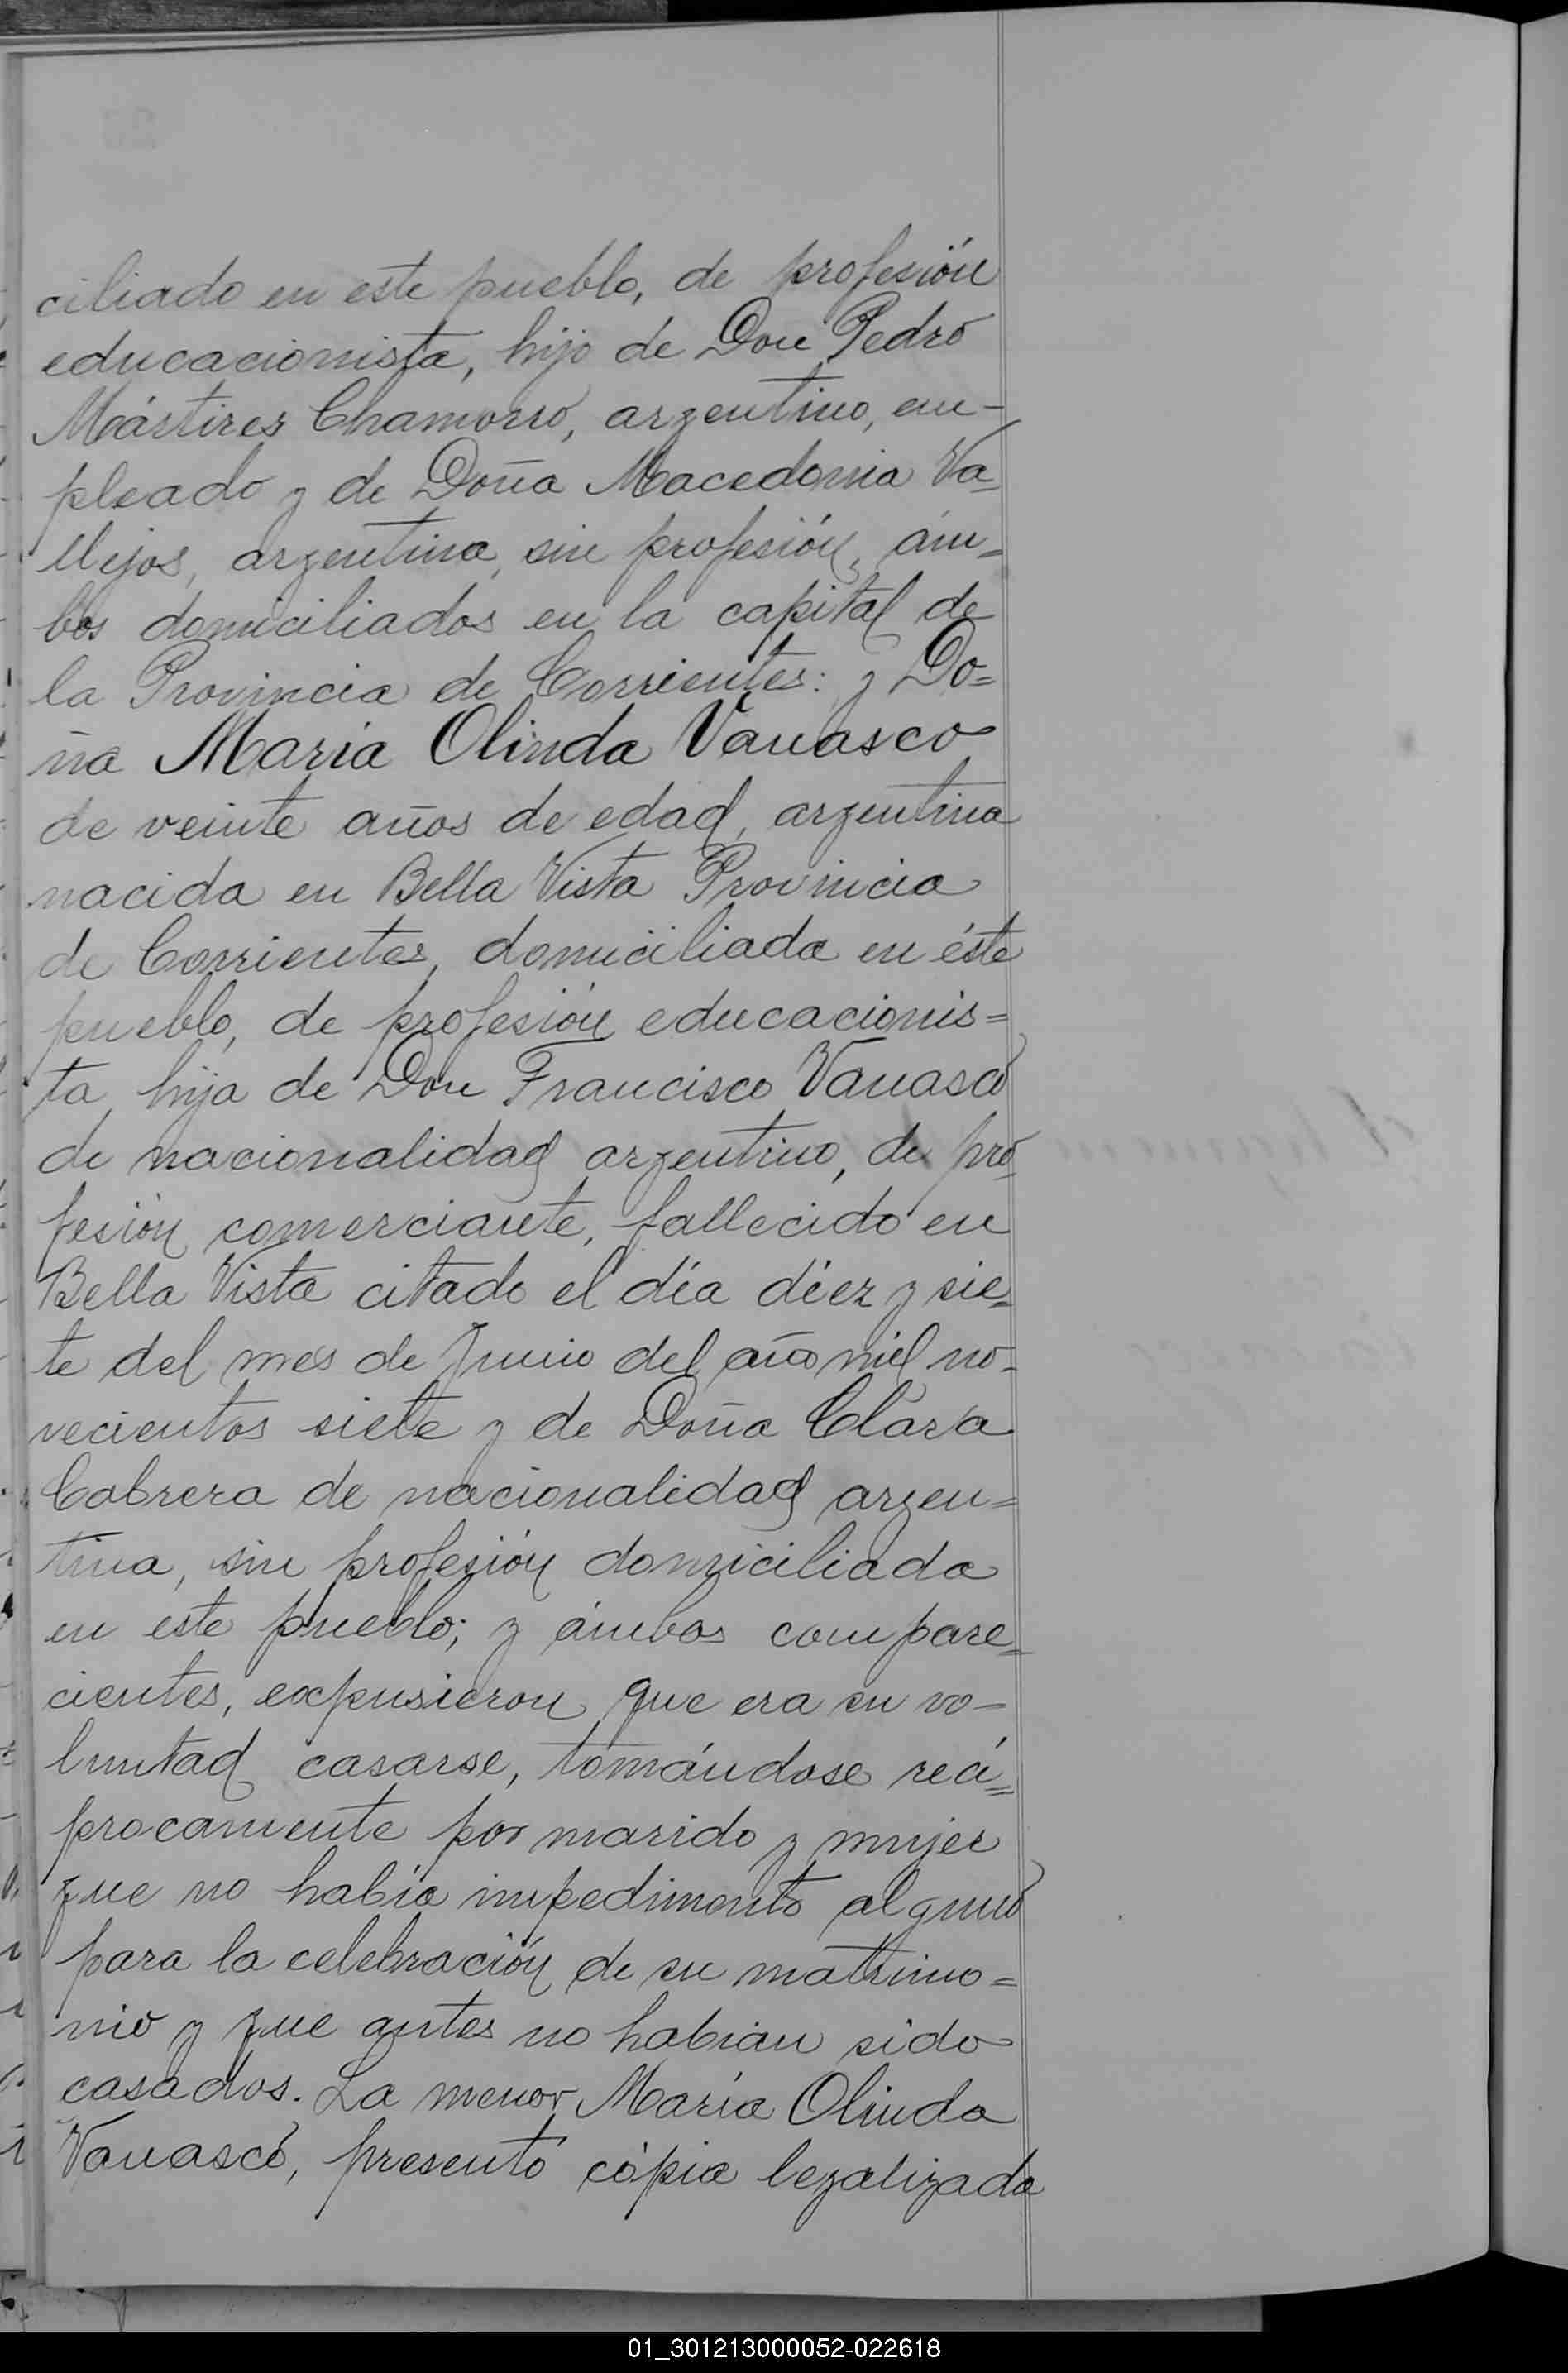 ciliado en este pueblo, de profesión
educacionista, hijo de Don Pedro
Mártires Chamorro, argentino, em-
pleado y de Doña Macedonia Va=
llejos, argentina, sin profesión, ám=
bos domiciliados en la capital de
la Provincia de Corrientes: y Do=
ña Maria Olinda Vanasco
de veinte años de edad, argentina
nacida en Bella Vista Provincia
de Corrientes, domiciliada en éste
pueblo, de profesión educacionis=
ta, hija de Don Francisco Vanasco
de nacionalidad argentino, de pro=
fesión comerciante, fallecido en
Bella Vista citado el día diez y sie=
te del mes de Junio del año mil no-
vecientos siete y de Doña Clara
Cabrera de nacionalidad argen=
tina, sin profesión domiciliada
en este pueblo; y ámbos compare=
cientes, expusieron que era su vo-
luntad casarse, tomándose recí=
procamente por marido y mujer
que no había impedimento alguno
para la celebración de su matrimo=
nio y que antes no habían sido
casados. La menor María Olinda
Vanasco, presentó cópia legalizada
01_301213000052-022618